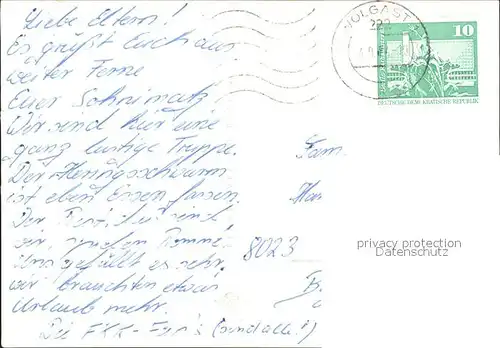 Liebe Eltern!
Es grüßt Euch aus
weiter Ferne
Euer Sohnimatz!
Wir sind hier eine
ganz lustige Truppe.
Der
ist eben Essen fassen.
Der Rest
wir, spielen Rommé.
Uns gefällt es sehr,
wir brauchten etwas
Urlaub mehr.
Die FKK-
WOLGAST
222
10
DEUTSCHE DEMOKRATISCHE REPUBLIK
Fam.
8023
privacy protection
Datenschutz